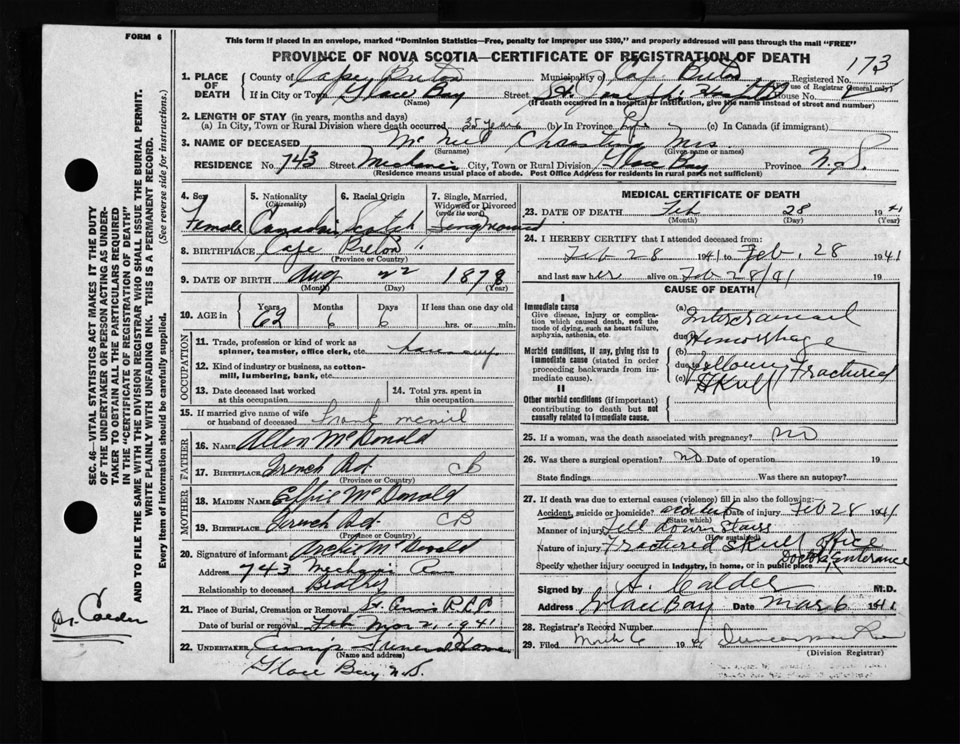 FORM 6
This form if placed in an envelope, marked "Dominion Statistics—Free, penalty for improper use $300," and properly addressed will pass through the mail "FREE"
PROVINCE OF NOVA SCOTIA—CERTIFICATE OF REGISTRATION OF DEATH
173
SEC. 46—VITAL STATISTICS ACT MAKES IT THE DUTY
OF THE UNDERTAKER OR PERSON ACTING AS UNDER-
TAKER TO OBTAIN ALL THE PARTICULARS REQUIRED
IN THE "CERTIFICATE OF REGISTRATION OF DEATH"
AND TO FILE THE SAME WITH THE DIVISION REGISTRAR WHO SHALL ISSUE THE BURIAL PERMIT.
WRITE PLAINLY WITH UNFADING INK. THIS IS A PERMANENT RECORD.
Every item of information should be carefully supplied. (See reverse side for instructions.)
Dr. Calder
1. PLACE OF DEATH
County of Cape Breton Municipality of Cape Breton Registered No.
(For use of Registrar General only)
If in City or Town Glace Bay Street St. Joseph's House No.
(Name) (If death occurred in a hospital or institution, give the name instead of street and number)
2. LENGTH OF STAY (in years, months and days)
(a) In City, Town or Rural Division where death occurred 35 years (b) In Province Life (c) In Canada (if immigrant)
3. NAME OF DECEASED McNeil Mrs.
(Surname) (Given name or names)
RESIDENCE No. 743 Street Mechanic City, Town or Rural Division Glace Bay Province N.S.
(Residence means usual place of abode. Post Office Address for residents in rural parts not sufficient)
4. Sex Female
5. Nationality (Citizenship) Canadian
6. Racial Origin Scotch
7. Single, Married, Widowed or Divorced (write the word)
8. BIRTHPLACE Cape Breton
(Province or Country)
9. DATE OF BIRTH Aug 22 1878
(Month) (Day) (Year)
10. AGE in Years 62 Months 6 Days 6 If less than one day old
hrs. or min.
OCCUPATION
11. Trade, profession or kind of work as
spinner, teamster, office clerk, etc.
12. Kind of industry or business, as cotton-
mill, lumbering, bank, etc.
13. Date deceased last worked at this occupation
14. Total yrs. spent in this occupation
15. If married give name of wife
or husband of deceased Frank McNeil
FATHER
16. NAME Allen McDonald
17. BIRTHPLACE French Rd. CB
(Province or Country)
MOTHER
18. MAIDEN NAME Effie McDonald
19. BIRTHPLACE French Rd. CB
(Province or Country)
20. Signature of informant Archie McDonald
Address 743 Mechanic
Relationship to deceased Brother
21. Place of Burial, Cremation or Removal St. Anns
Date of burial or removal Mar 2, 1941
22. UNDERTAKER Funeral Home
(Name and address)
Glace Bay N.S.
MEDICAL CERTIFICATE OF DEATH
23. DATE OF DEATH Feb 28 1941
(Month) (Day) (Year)
24. I HEREBY CERTIFY that I attended deceased from:
Feb 28 1941 to Feb. 28 1941
and last saw her alive on Feb 28/41 19
CAUSE OF DEATH
I
Immediate cause
Give disease, injury or complica-
tion which caused death, not the
mode of dying, such as heart failure,
asphyxia, asthenia, etc.
Morbid conditions, if any, giving rise to
immediate cause (stated in order
proceeding backwards from im-
mediate cause).
II
Other morbid conditions (if important)
contributing to death but not
causally related to immediate cause.
(a) Intercranial
due to Hemorrhage
(b)
due to following Fractured
(c) Skull
25. If a woman, was the death associated with pregnancy? no
26. Was there a surgical operation? no Date of operation 19
State findings Was there an autopsy?
27. If death was due to external causes (violence) fill in also the following:
Accident, suicide or homicide? Date of injury Feb 28 1941
(State which)
Manner of injury Fell down Stairs
(How sustained)
Nature of injury Fractured Skull
Office
Specify whether injury occurred in industry, in home, or in public place Doctor's entrance
Signed by A. Calder M.D.
Address Glace Bay Date Mar 6 1941
28. Registrar's Record Number
29. Filed 6 19
(Division Registrar)